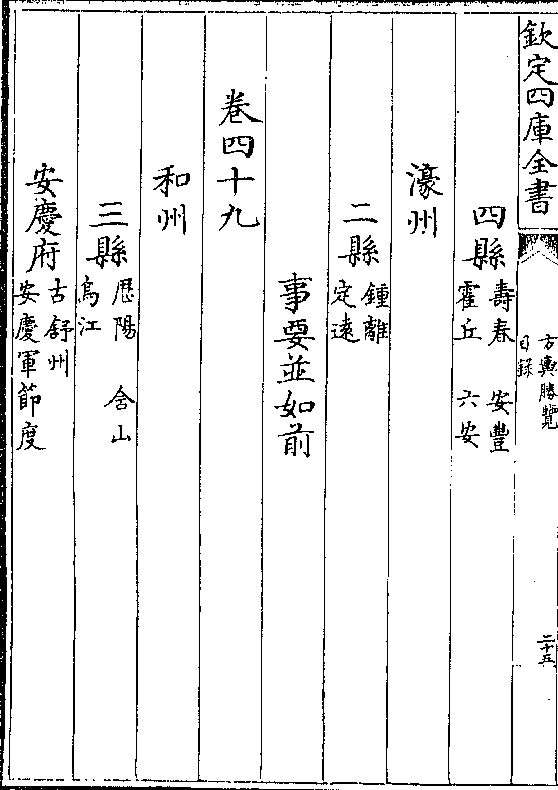 欽定四庫全書
方輿勝覽
目錄
二十五
四縣 壽春 安豐
霍丘 六安
濠州
二縣 鍾離
定遠
事要並如前
卷四十九
和州
三縣 歷陽 含山
烏江
安慶府 古舒州
安慶軍節度